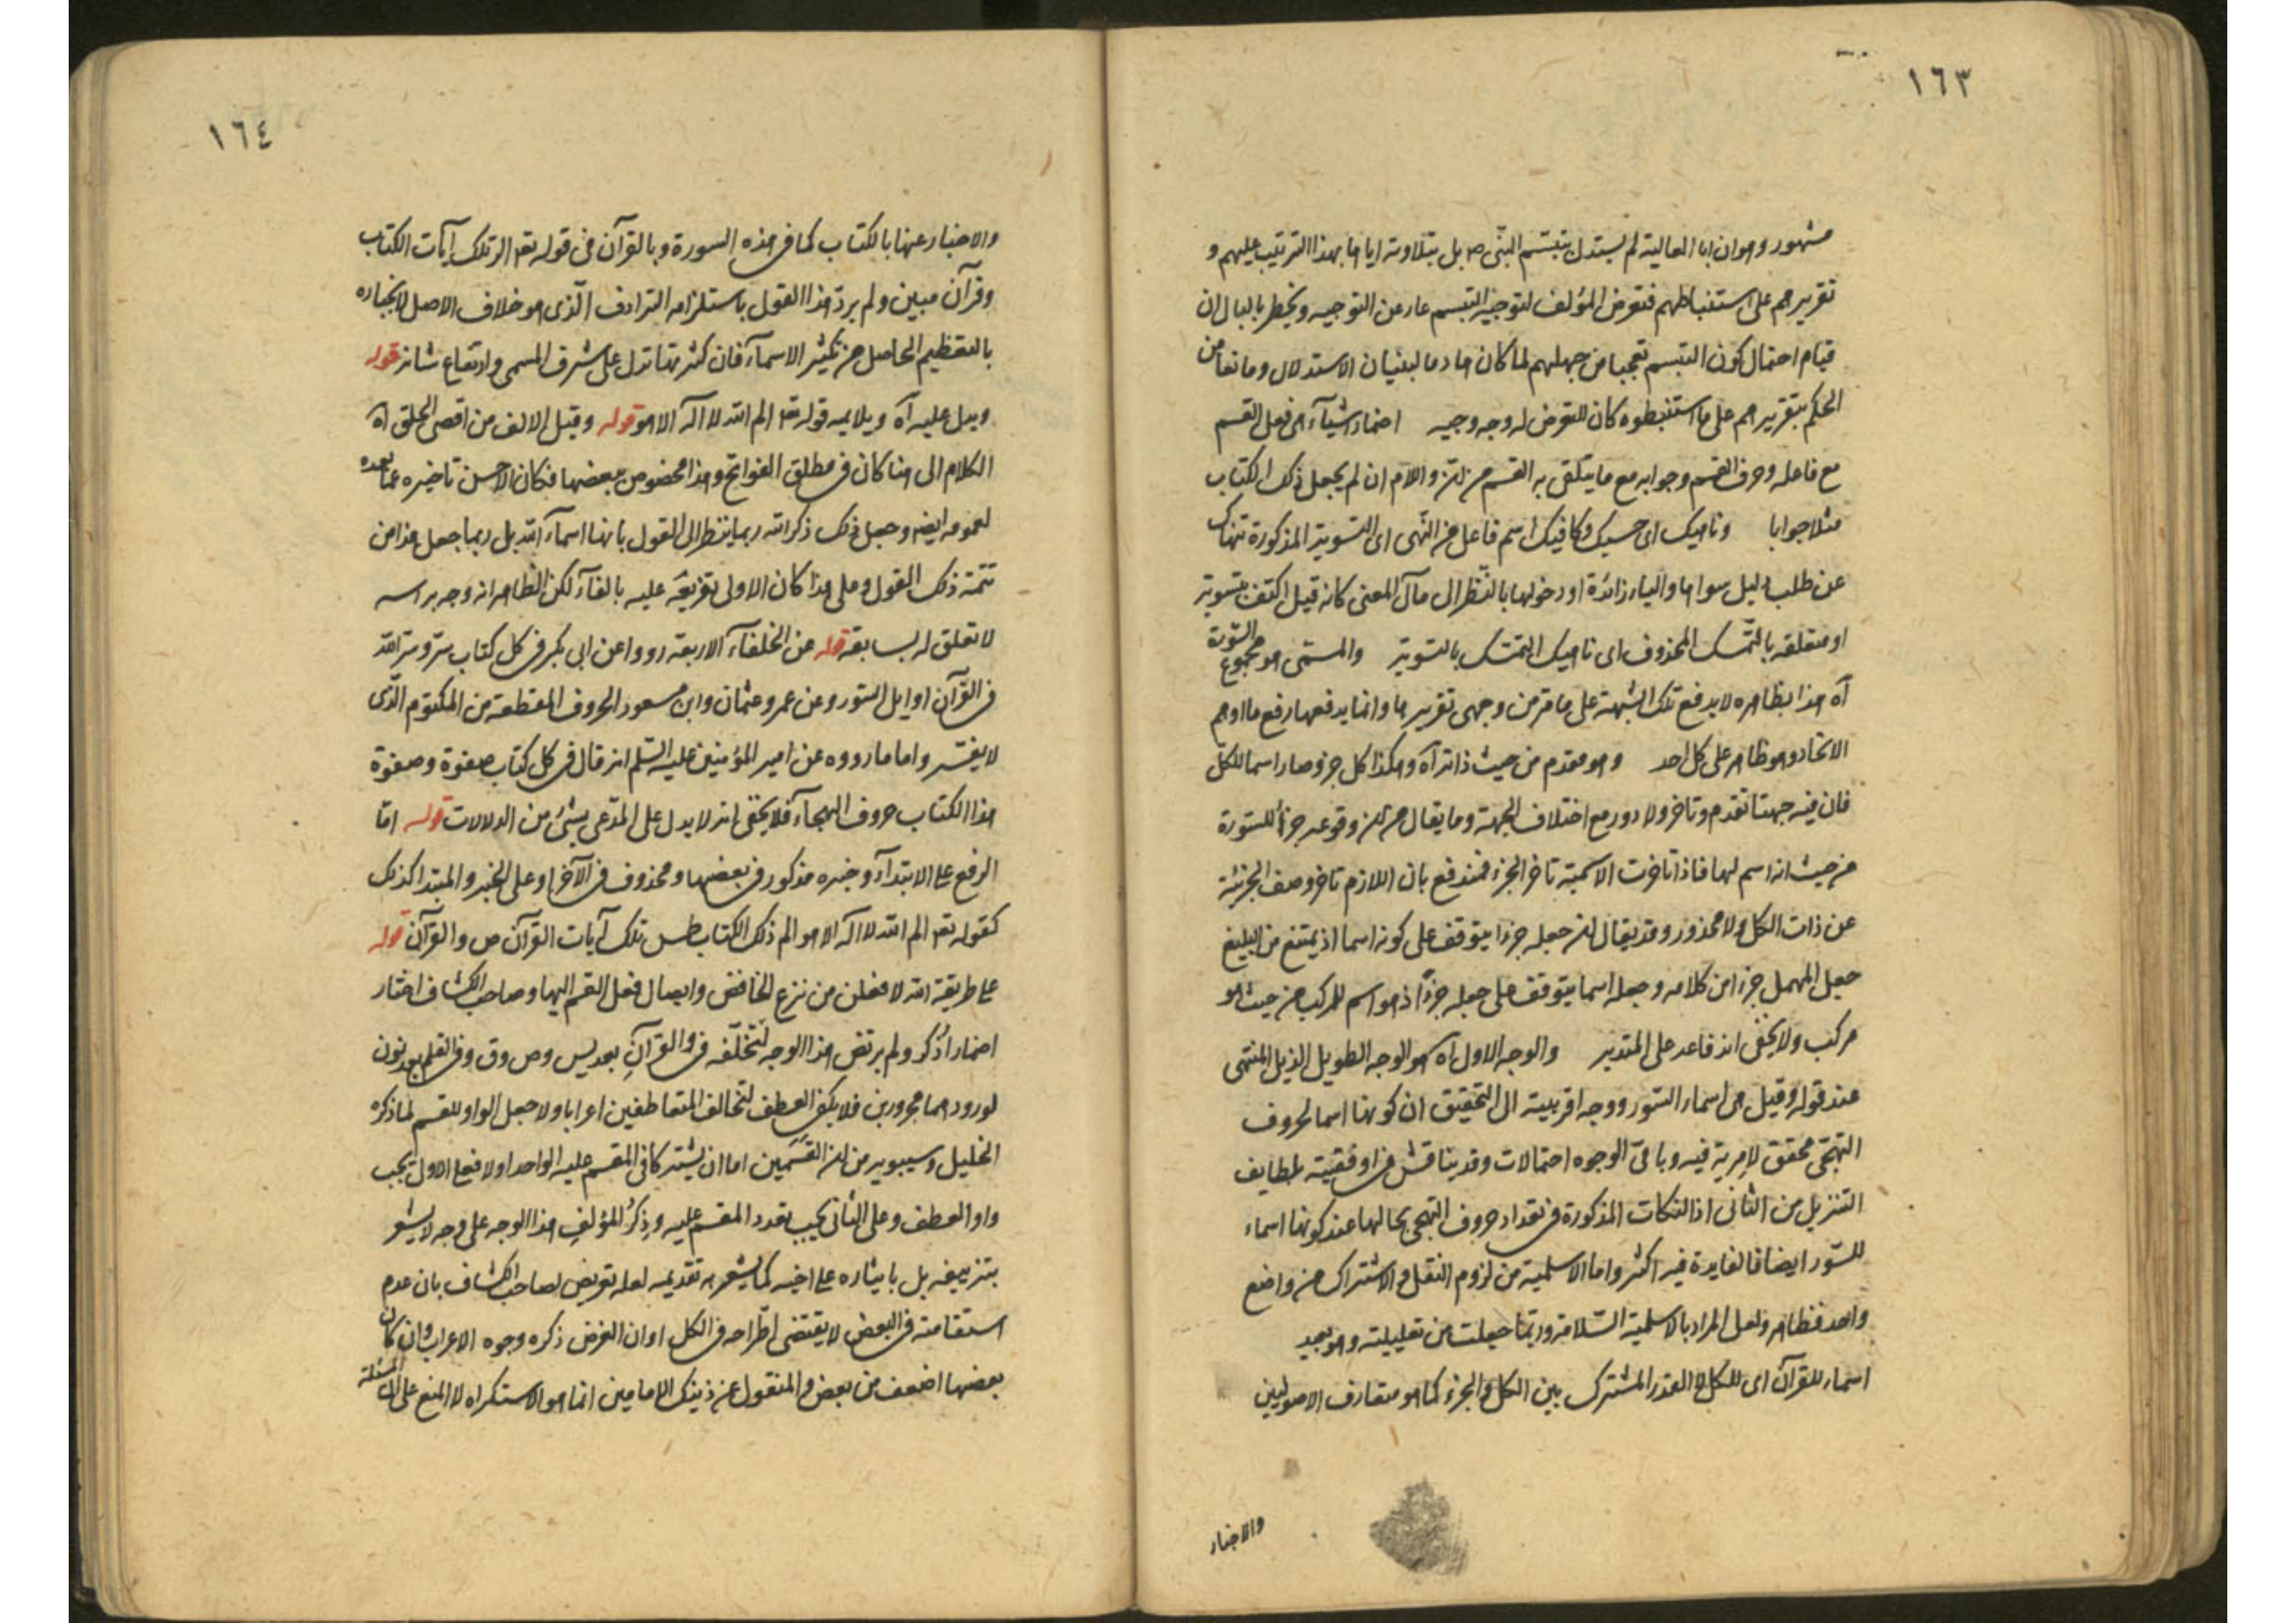 ١٦٣
مشهور وهو ان ابا العالية لم يستدل بتبسم النبى ص بل بتلاوته اياها بهذا الترتيب عليهم و
تقريرهم على استنباطهم فتعرض المؤلف لتوجيه التبسم عار عن التوجيه ويخطر بالبال ان
قيام احتمال كون التبسم تعجبا من جهلهم لما كان هادما لبنيان الاستدلال ومانعا من
الحكم بتقريرهم على ما استنبطوه كان للتعرض له وجه وجيه اضمار اشيآء هى فعل القسم
مع فاعله وحرف القسم وجوابه مع ما يتلقى به القسم من ان واللام ان لم يجعل ذلك الكتاب
مثلا جوابا وناهيك اى حسبك وكافيك اسم فاعل من النهى اى التسوية المذكورة تنهاك
عن طلب دليل سواها والباء زائدة او دخولها بالنظر الى مآل المعنى كانه قيل اكتف بتسوية
او متعلقه بالتمسك المحذوف اى ناهيك التمسك بالتسوية والمسمى هو مجموع السورة
آه هذا بظاهره لا يدفع تلك الشبهة على ما مر من وجهى تقريرها وانما يدفعها رفع ما اوهم
الاتحاد وهو ظاهر على كل احد وهو مقدم من حيث ذاته آه وهكذا كل جزء صار اسما للكل
فان فيه جهتا تقدم وتاخر ولا دور مع اختلاف الجهة وما يقال من ان وقوعه جزأ للسورة
من حيث انه اسم لها فاذا تاخرت الاسمية تاخر الجزء فمندفع بان اللازم تاخر وصف الجزئية
عن ذات الكل ولا محذور وقد يقال ان جعله جزءا يتوقف على كونه اسما اذ يمتنع من البليغ
جعل المهمل جزءا من كلامه وجعله اسما يتوقف على جعله جزءًا اذ هو اسم للمركب من حيث هو
مركب ولا يخفى اندفاعه على المتدبر والوجه الاول آه هو الوجه الطويل الذيل المنتهى
عند قوله وقيل هى اسماء السور ووجه اقربيته الى التحقيق ان كونها اسما لحروف
التهجى محقق لا مرية فيه وباقى الوجوه احتمالات وقد يناقش فى اوفقيته لطايف
التنزيل من الثانى اذ النكات المذكورة فى تعداد حروف التهجى بحالها عند كونها اسماء
للسور ايضا فالفايدة فيه اكثر واما الاسلمية من لزوم النقل والاشتراك من واضع
واحد فظاهر ولعل المراد بالاسلمية السلامة وربما جعلت من تعليلية وهو بعيد
اسماء للقرآن اى للكل لا القدر المشترك بين الكل والجزء كما هو متعارف الاصوليين
والاخبار
١٦٤
والاخبار عنها بالكتاب كما فى هذه السورة وبالقرآن فى قوله تعـ الر تلك آيات الكتاب
وقرآن مبين ولم يرد هذا القول باستلزامه الترادف الذى هو خلاف الاصل لانجباره
بالتعظيم الحاصل من تكثير الاسمآء فان كثرتها تدل على شرف المسمى وارتفاع شانه قوله
ويدل عليه آه ويلايمه قوله تعـ الم الله لا اله الا هو قوله وقيل الالف من اقصى الحلق آه
الكلام الى هنا كان فى مطلق الفواتح وهذا مخصوص ببعضها فكان الاحسن تاخيره عما بعده
لعمومه ايضا وجعل ذلك ذكر الله ربما ينظر الى القول بانها اسمآء الله بل ربما جعل هذا من
تتمة ذلك القول وعلى هذا كان الاولى تفريعه عليه بالفآء لكن الظاهر انه وجه براسه
لا تعلق له بسابقه قوله عن الخلفآء الاربعة رووا عن ابى بكر فى كل كتاب سر وسر الله
فى القرآن اوايل السور وعن عمر وعثمان وابن مسعود الحروف المقطعة من المكتوم الذى
لا يفسر واما ما رووه عن امير المؤمنين عليه السلم انه قال فى كل كتاب صفوة وصفوة
هذا الكتاب حروف الهجآء فلا يخفى انه لا يدل على المدعى بشئ من الدلالات قوله اما
الرفع على الابتدآء وخبره مذكور فى بعضها ومحذوف فى الآخر او على الخبر والمبتدا كذلك
كقوله تعـ الم الله لا اله الا هو الم ذلك الكتاب طس تلك آيات القرآن ص والقرآن قوله
على طريقة الله لافعلن من نزع الخافض وايصال فعل القسم اليها وصاحب الكشاف اختار
اضمار اذكر ولم يرتض هذا الوجه لتخلفه فى والقرآنِ بعد يس وص وق وفى القلم بعد نون
لورودهما مجرورين فلا يمكن العطف لتخالف المتعاطفين اعرابا ولا جعل الواو للقسم لما ذكره
الخليل وسيبويه من ان القسَمين اما ان يشتركا فى المقسم عليه الواحد اولا فعلى الاول يجب
واو العطف وعلى الثانى يجب تعدد المقسم عليه وذِكرُ المؤلفِ هذا الوجه على وجه لا يشعر
بتزييفه بل بايثاره على اخيه كما يشعر به تقديمه لعله تعريض لصاحب الكشاف بان عدم
استقامته فى البعض لا يقتضى اطّراحه فى الكل او ان الغرض ذكره وجوه الاعراب وان كان
بعضها اضعف من بعض والمنقول عن ذينك الامامين انما هو الاستكراه لا المنع على ان المسئلة